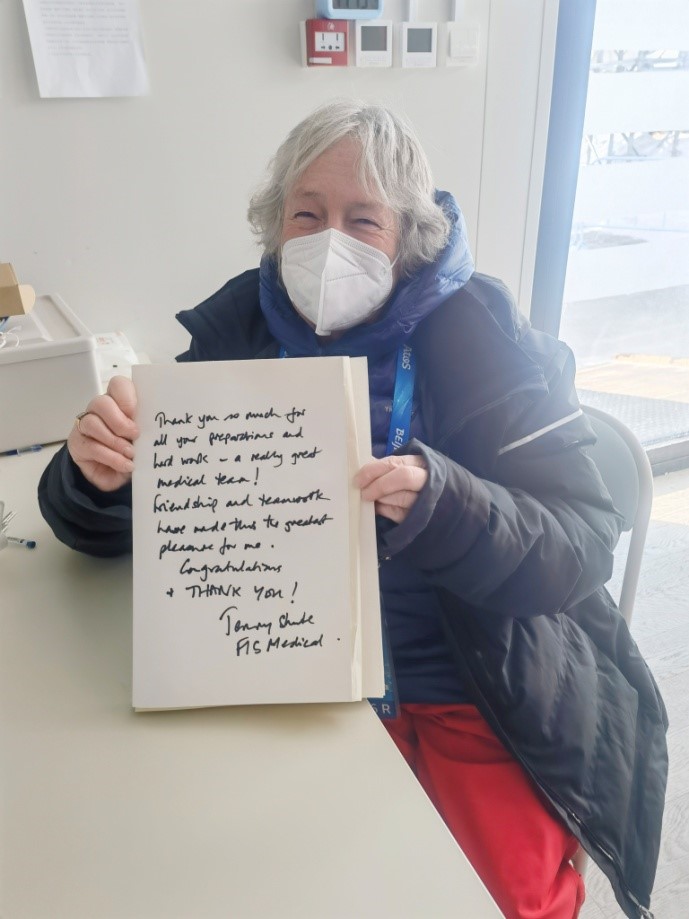 Thank you so much for
all your preparations and
hard work – a really great
medical team!
Friendship and teamwork
have made this the greatest
pleasure for me.
Congratulations
+ THANK YOU!
FIS Medical.
Atos